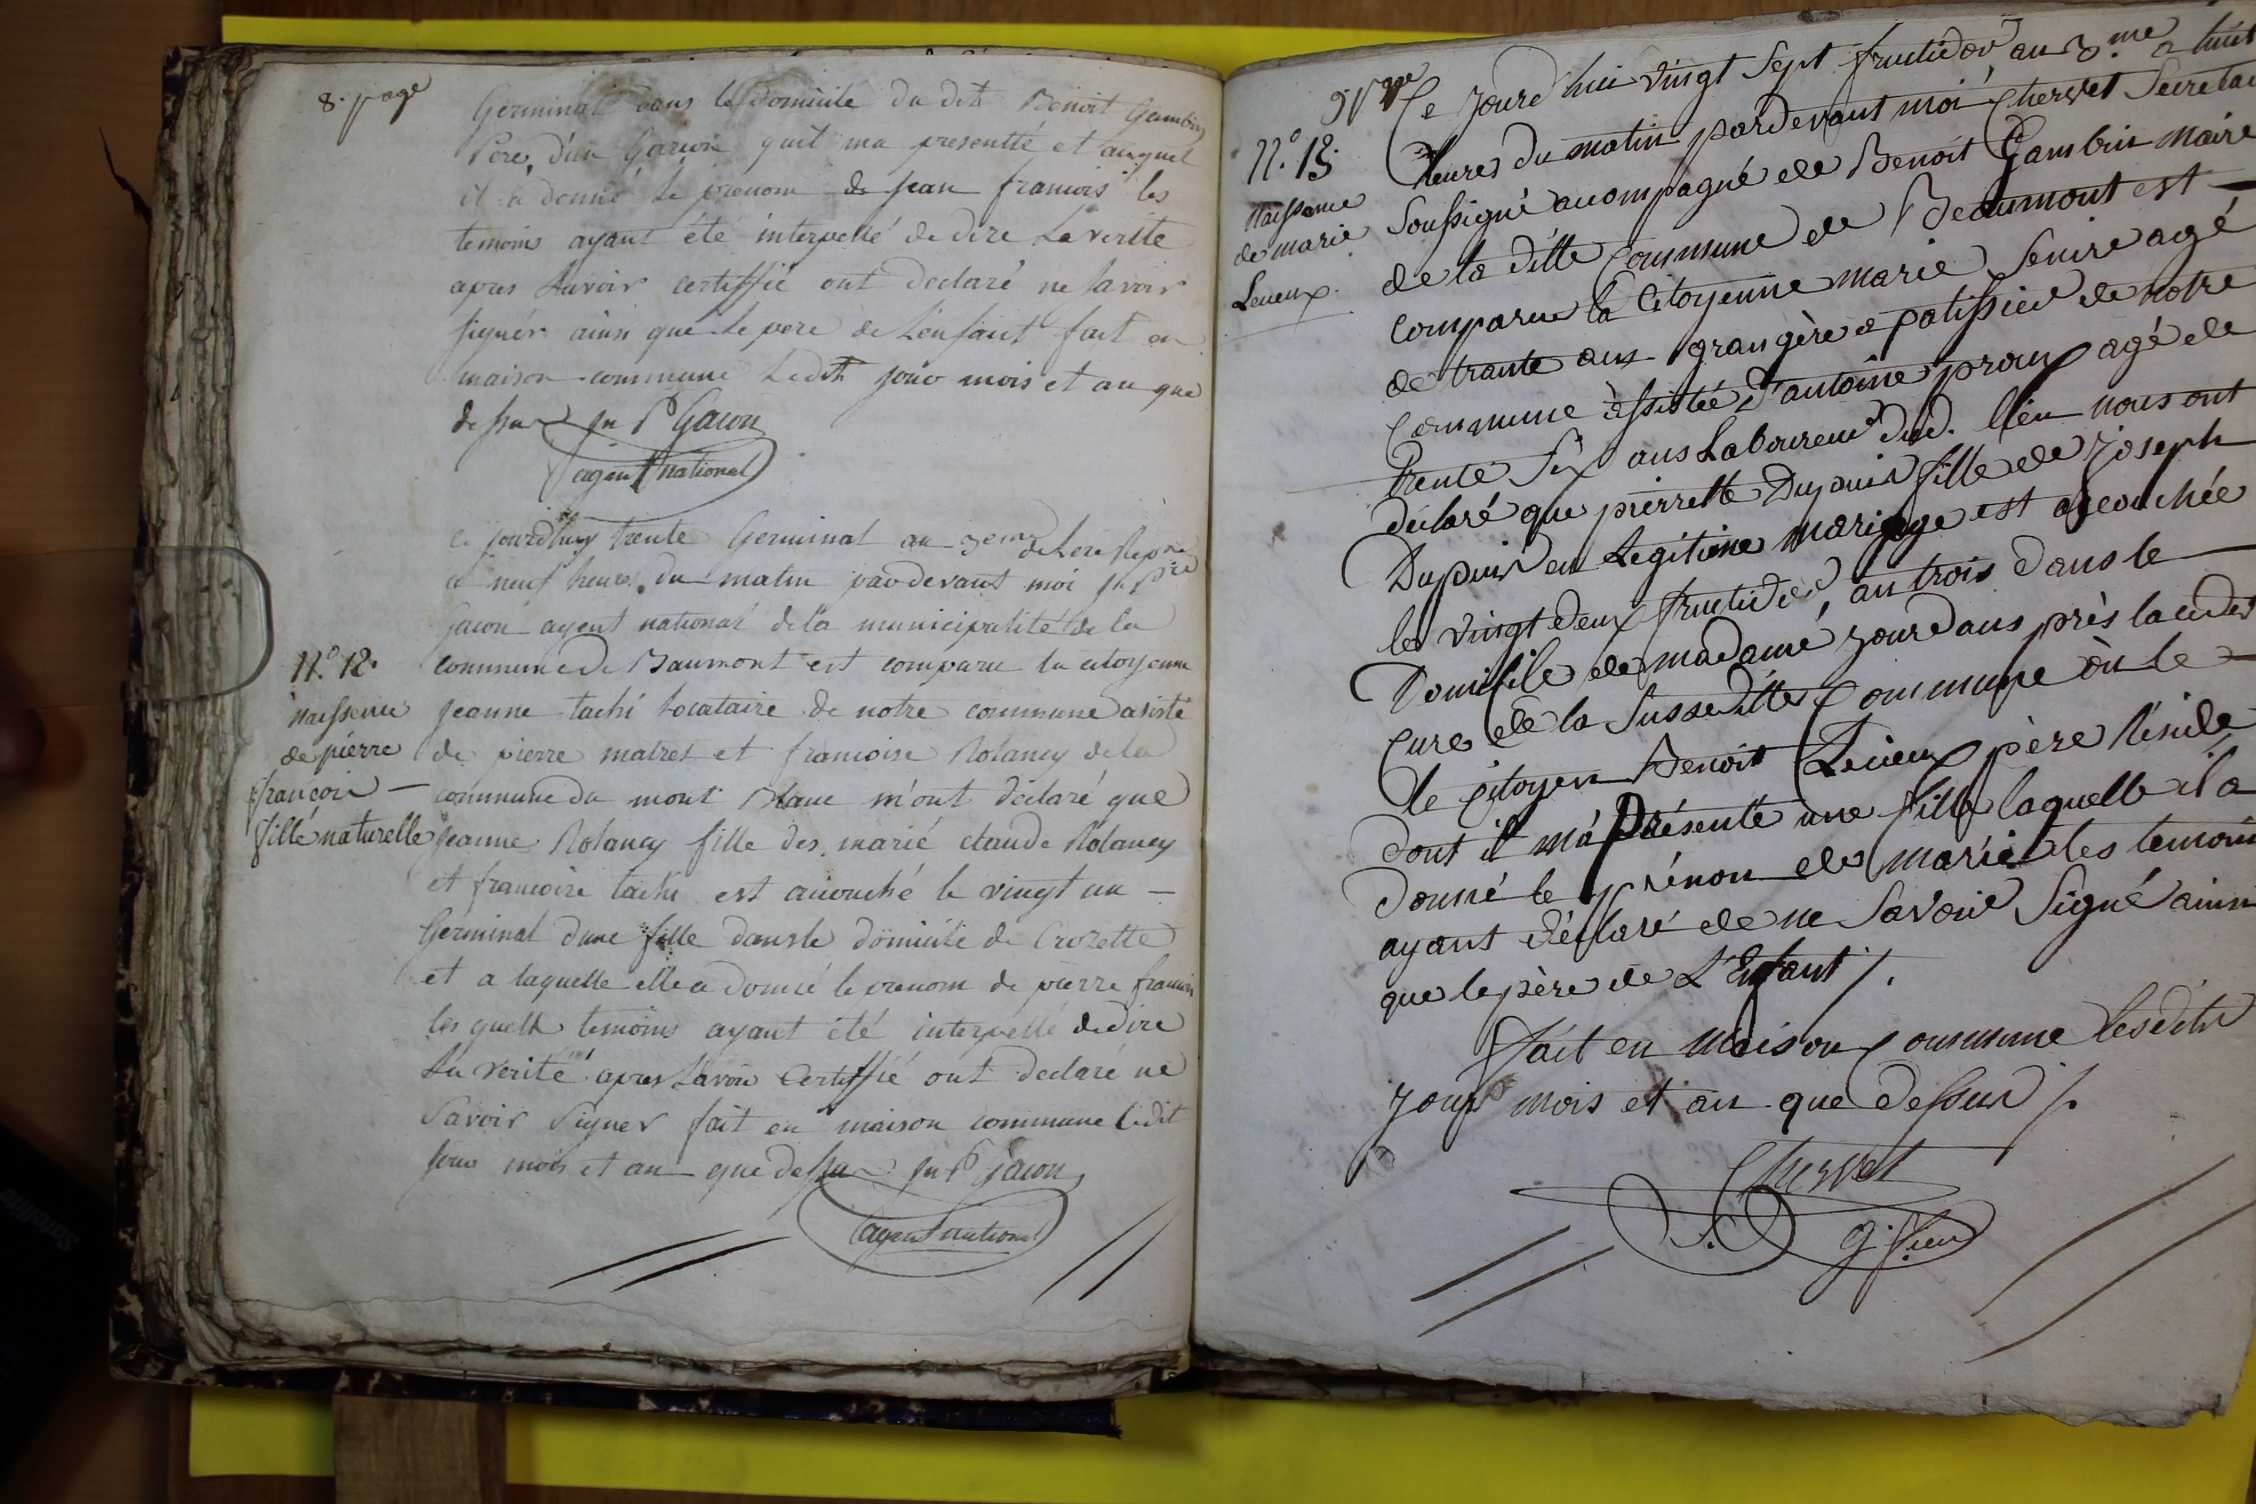 8. page
Germinal dans le domicile du dit Benoit Gambin
Pere d'un Garcon quil ma presentté et auquel
il a donné le prenom de jean francois les
temoins ayant été interpellé de dire La verité
apres Lavoir certiffié ont declaré ne savoir
signér ainsi que le pere de L'enfant fait en
maison commune Ledit jour mois et an que
dessus jn P Gacon
agent national
ce jourdhuy trente Germinal an 3eme de Lere Repne
a neuf heures du matin pardevant moi jn Pre
Gacon agent national dela municipalité de la
N.o 12.
naissence
de piérre
françoir —
fille naturelle
commune de Baumont est comparu la citoyenne
jeanne tachi locataire de notre commune asisté
de pierre matret et francoise Rolancy dela
commune du mont Blanc m'ont déclaré que
jeanne Rolancy fille des marié claude Rolancy
et francoise tachi est accouché le vingt un —
Gérminal dune fille dansle domicile de Crozette
et a laquelle elle a donné le prenom de piérre francois
les quels temoins ayant été interpellé de dire
La verité apres Lavoir Certiffié ont declaré ne
savoir signer fait en maison commune ledit
jour mois et an que dessus jn P Gacon
agent national
N.o 13.
naissance
de marie
Lecieux.
Ce jourd'hui vingt sept fructidor an 3.me a huit
heures du matin pardevant moi Chervet Secretai
soussigné acompagné de Benoit Gambin maire
de la ditte Commune de Beaumont est —
comparue la Citoyenne marie Senire agé
de trante ans grangère a patissied de notre
Commune assistée d'antoine proux agé de
trente six ans Laboureur dud. lieu nous ont
déclaré que piérrette Dupuis fille de joseph
Dupuis en Legitime mariage est accouchée
le vingt deux fructidor, an trois dans le —
Domisile de madame jourdans près lacudes
Cure de la Sussdittes Commune òu le —
le citoyen Benoit Lecieux père Réside
dont il m'a Présenté une fille laquelle il a
donné le prénon de marie les temoins
ayant déclaré de ne Savoir Signé ainsi
que le père de L'Enfant /.
fait en Maison Commune lesdits
jour mois et an que dessus /.
Chervet